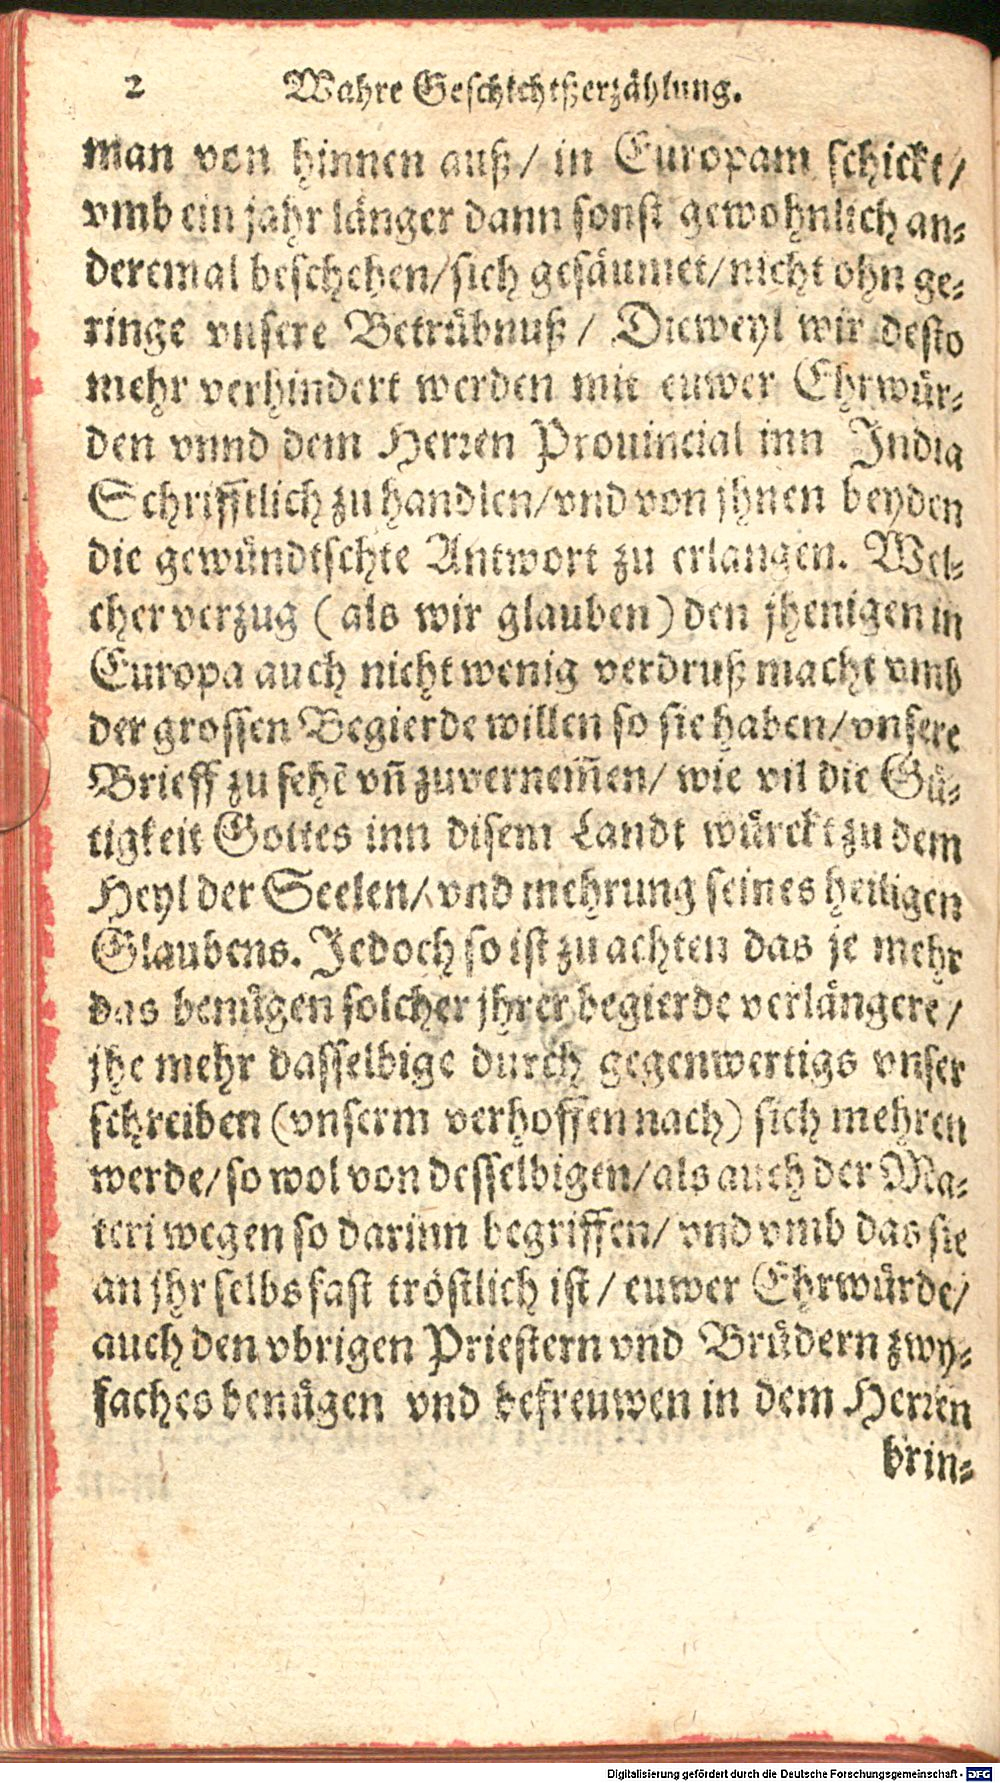 2 Wahre Geschichtßerzählung.
man von hinnen auß / in Europam schickt /
vmb ein jahr länger dann sonst gewohnlich an-
deremal beschehen / sich gesäumet / nicht ohn ge-
ringe vnsere Betrübnuß / Dieweyl wir desto
mehr verhindert werden mit euwer Ehrwür-
den vnnd dem Herren Prouincial inn India
Schrifftlich zu handlen / vnd von jhnen beyden
die gewündtschte Antwort zu erlangen. Wel-
cher verzug (als wir glauben) den jhenigen in
Europa auch nicht wenig verdruß macht vmb
der grossen Begierde willen so sie haben / vnsere
Brieff zu sehē vñ zuvernem̃en / wie vil die Gü-
tigkeit Gottes inn disem Landt würckt zu dem
Heyl der Seelen / vnd mehrung seines heiligen
Glaubens. Jedoch so ist zu achten das je mehr
das benügen solcher jhrer begierde verlängere /
jhe mehr dasselbige durch gegenwertigs vnser
schreiben (vnserm verhoffen nach) sich mehren
werde / so wol von desselbigen / als auch der Ma-
teri wegen so darinn begriffen / vnd vmb das sie
an jhr selbs fast tröstlich ist / euwer Ehrwürde /
auch den vbrigen Priestern vnd Brüdern zwy-
faches benügen vnd befreuwen in dem Herren
brin-
Digitalisierung gefördert durch die Deutsche Forschungsgemeinschaft - DFG